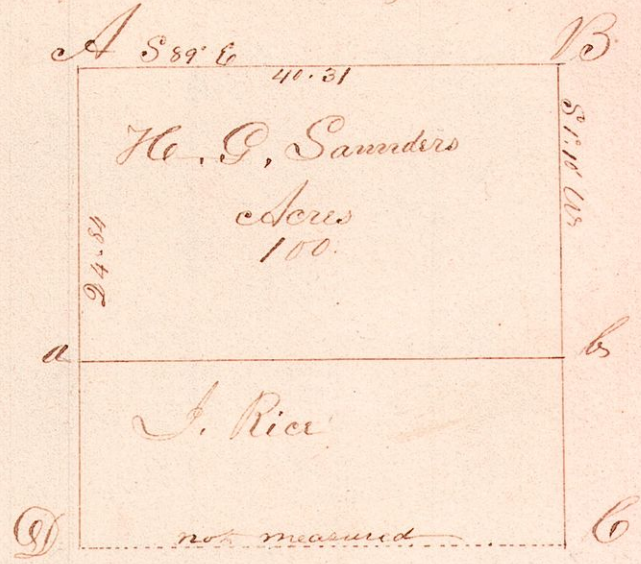 A S 89° E B
40.31
H. G. Saunders
Acres
100.
24.84
S 1° 10' W
a b
J. Rice
D not measured C